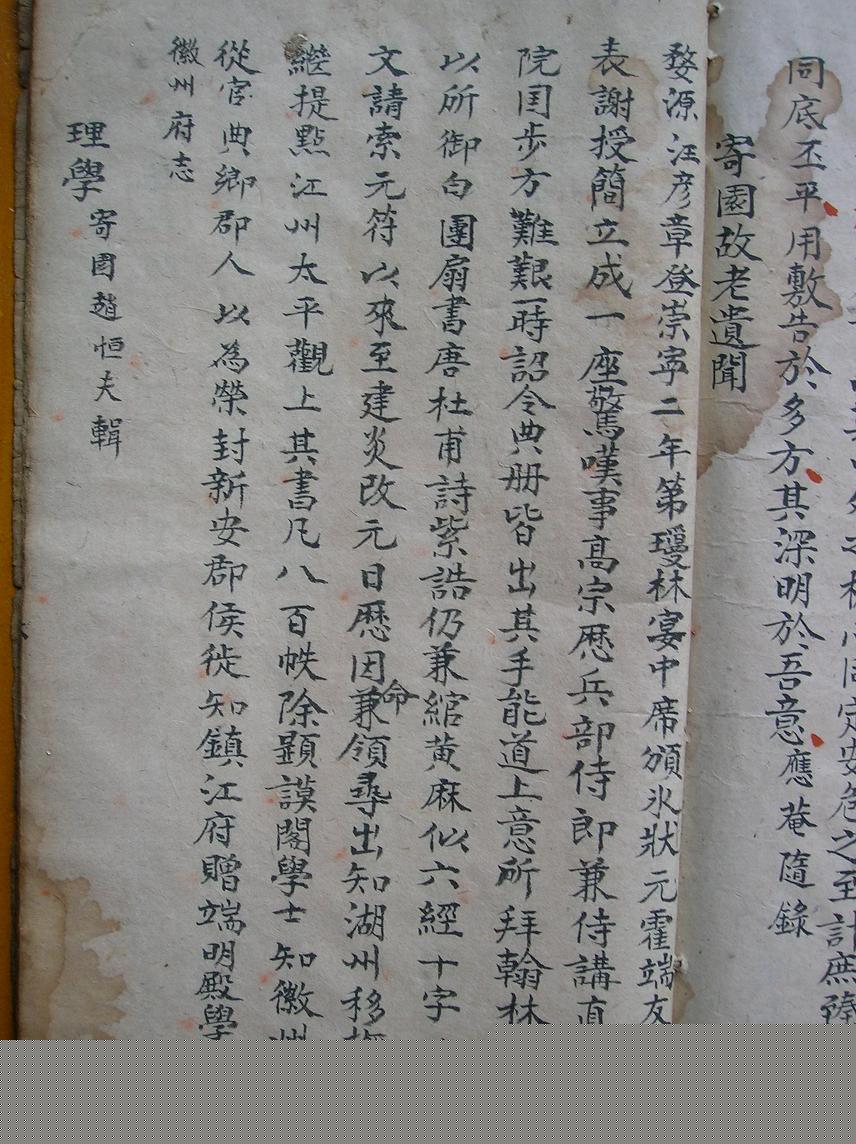 之至計庶
同底丕平用敷告於多方其深明於吾意應菴隨錄
寄園故老遺聞
婺源汪彦章登崇寧二年第瓊林宴中席頒氷狀元霍端友
表謝授簡立成一座驚嘆事髙宗歷兵部侍郎兼侍講直
院囯步方難艱一時詔令典册皆出其手能道上意所拜翰林
以所御白團扇書唐杜甫詩紫誥仍兼綰黄麻似六經十字
文請索元符以來至建炎改元日歷因命兼領尋出知湖州移撫
繼提㸃江州太平觀上其書凡八百帙除顕謨閣學士知徽州
從官典鄉郡人以為榮封新安郡侯徙知鎮江府贈端明殿學
徽州府志
理學 寄園趙恒夫輯